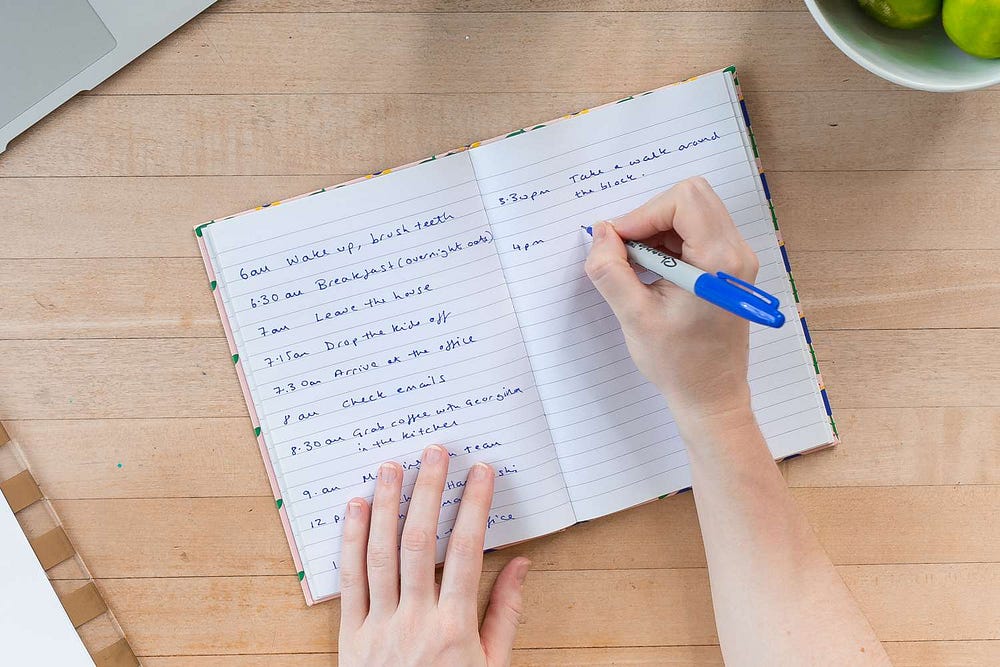 6am Wake up, brush teeth
6.30 am Breakfast (overnight oats)
7am Leave the house
7.15am Drop the kids off
7.30am Arrive at the office
8 am check emails
8.30am Grab coffee with Georgina
in the kitchen
9.am team
12
3.30pm Take a walk around
the block.
4pm
Sharpie